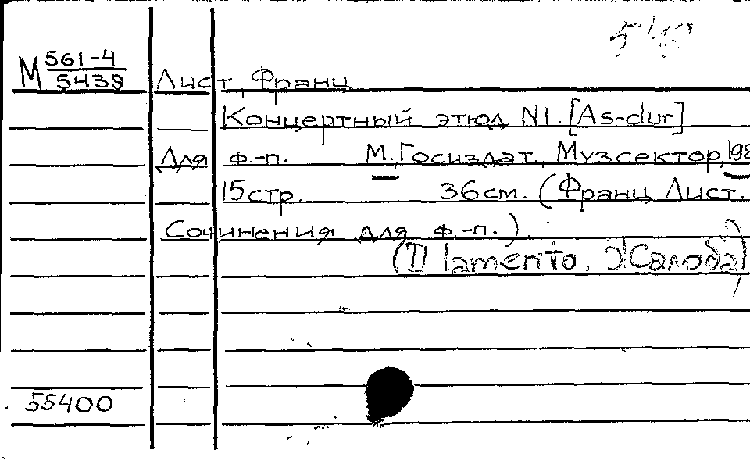 М 561-4
5439
Лист, Франц
Концертный этюд N1. [As-dur]
Для ф.-п. М., Госиздат, Музсектор,
15стр. 36см. (Франц Лист.
Сочинения для ф.-п.).
lamento, Жалоба)
55400